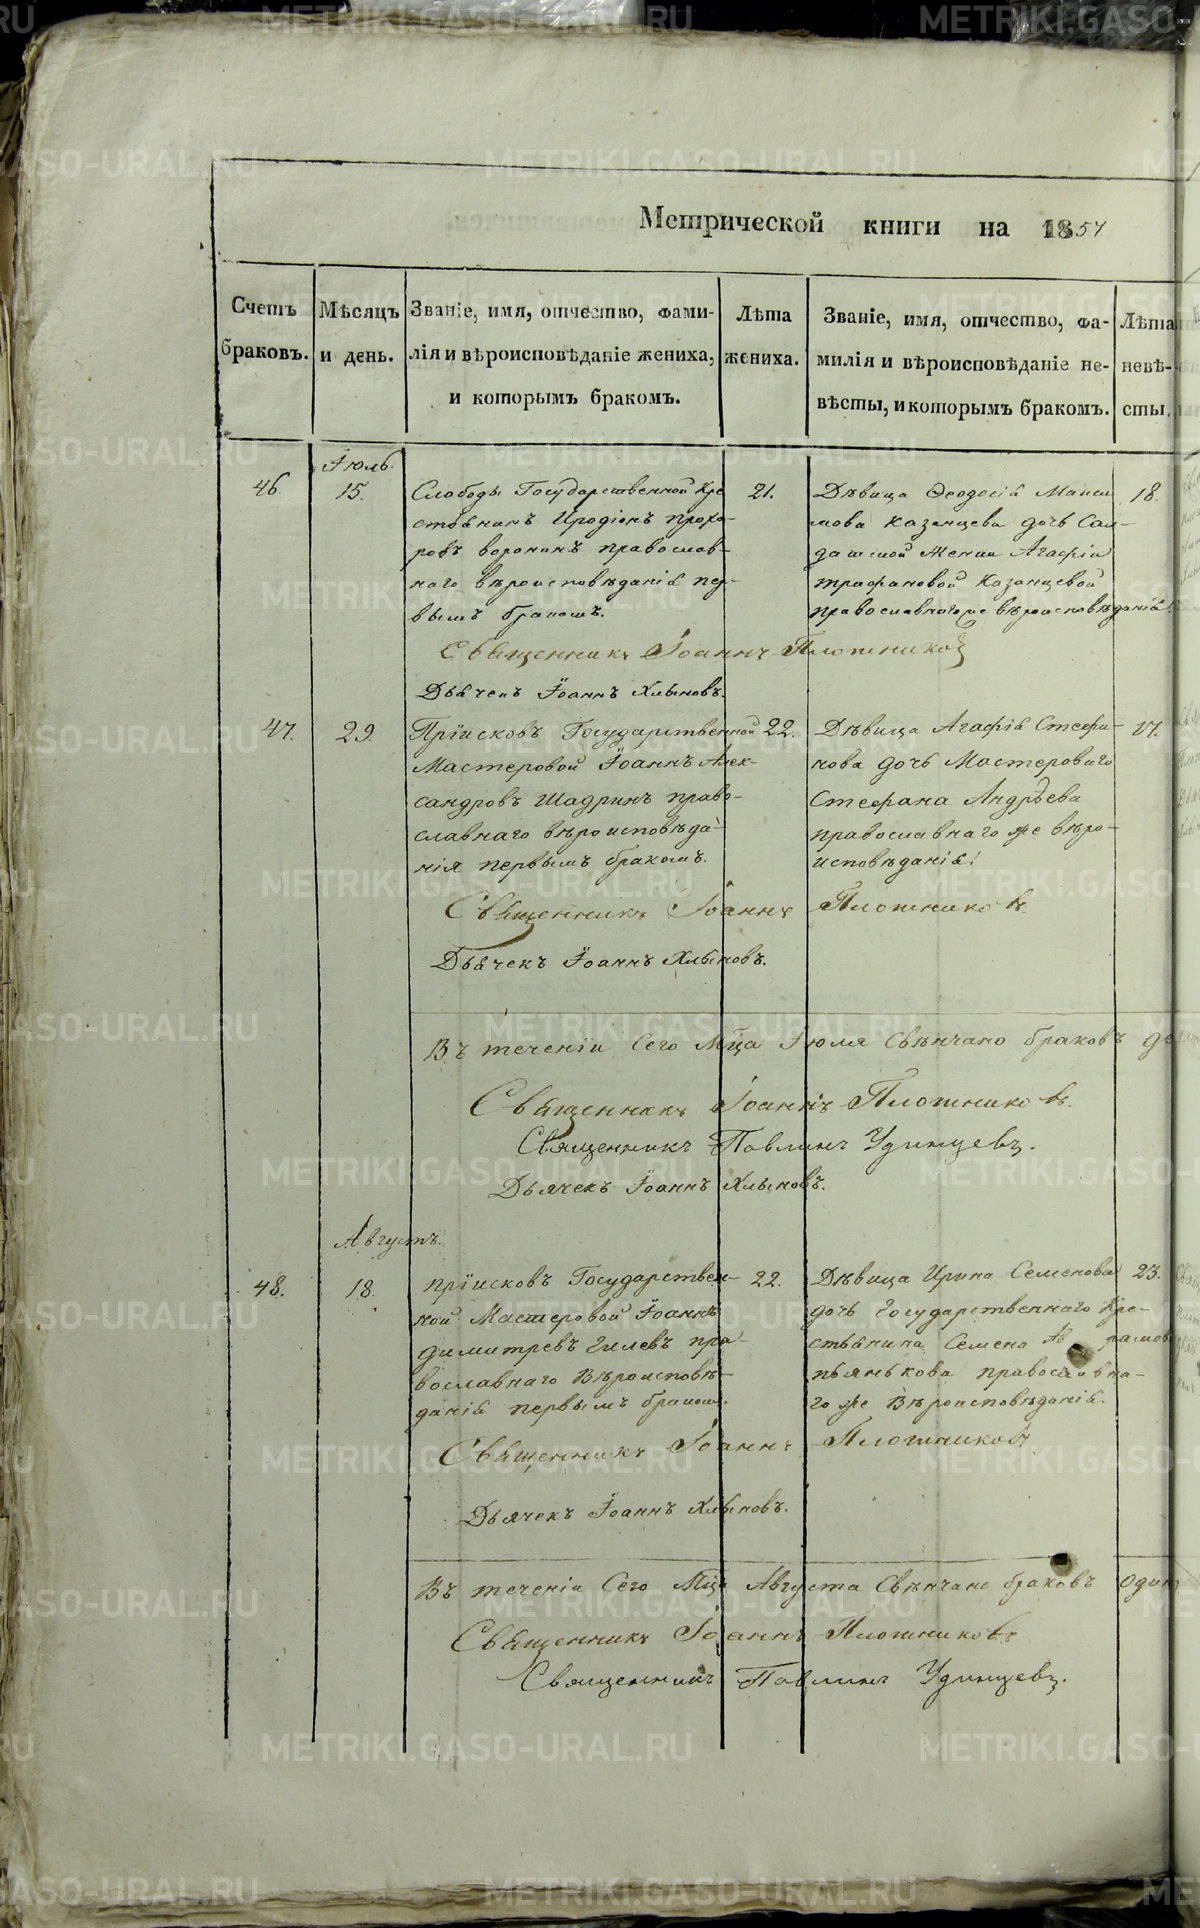 Метрической книги на 1857
Счетъ браковъ.
Мѣсяцъ и день.
Званіе, имя, отчество, фами-
лія и вѣроисповѣданіе жениха,
и которымъ бракомъ.
Лѣта жениха.
Званіе, имя, отчество, фа-
милія и вѣроисповѣданіе не-
вѣсты, и которымъ бракомъ.
Лѣта невѣ-
сты.
46.
Іюль.
15.
Слободы Государственной Кре
стьянинъ Иродіонъ Прохо-
ровъ воронинъ православ-
наго вѣроисповѣданія пер-
вымъ бракомъ.
21.
Дѣвица Ѳеодосія Макси
мова казанцева дочь Сол-
датской Жены Агафіи
трифановой Казанцевой
православнаго же вѣроисповѣданія.
18.
Священникъ Іоаннъ Плотниковъ
Дьячекъ Іоаннъ Хлыновъ.
47.
29.
Пріисковъ Государственной
Мастеровой Іоаннъ Алек-
сандровъ Шадринъ право-
славнаго вѣроисповѣда-
нія первымъ бракомъ.
22.
Дѣвица Агафія Стефа-
нова дочь Мастероваго
Стефана Андрѣева
православнаго же вѣро-
исповѣданія.
17.
Священникъ Іоаннъ Плотниковъ.
Дьячекъ Іоаннъ Хлыновъ.
Въ теченіи Сего Мца Іюля Свѣнчано браковъ
Священникъ Іоаннъ Плотниковъ.
Священникъ Павлинъ Удинцевъ.
Дьячекъ Іоаннъ Хлыновъ.
Августъ.
48.
18.
пріисковъ Государствен-
ной Мастеровой Іоаннъ
димитревъ Гилевъ пра-
вославнаго Вѣроисповѣ-
данія первымъ бракомъ.
22.
Дѣвица Ирина Семенова
дочь Государственнаго Кре-
стьянина Семена
пьянькова православна-
го же Вѣроисповѣданія.
23.
Священникъ Іоаннъ Плотниковъ
Дьячекъ Іоаннъ Хлыновъ.
Въ теченіи Сего Мца Августа Свѣнчано браковъ один
Священникъ Іоаннъ Плотниковъ
Священникъ Павлинъ Удинцевъ.
METRIKI.GASO-URAL.RU